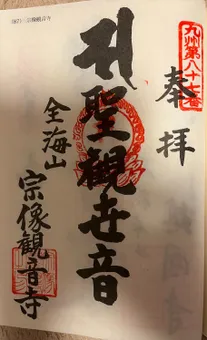 九州第八十七番
奉拝
聖觀世音
全海山
宗像觀音寺